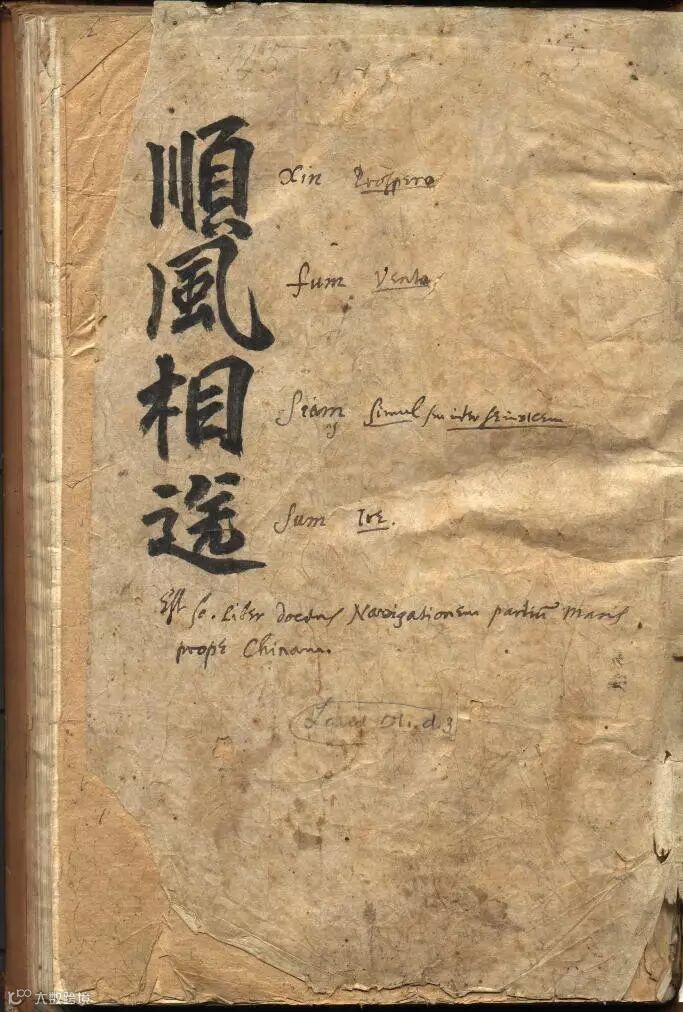 順風相送
Xin Prospero
fum Vento
Siam Simul seu inter se invicem
sum Ire.
Est sc. Liber docens Navigationem partium Maris
prope Chinam.
Laud Or. d3
大数跨境